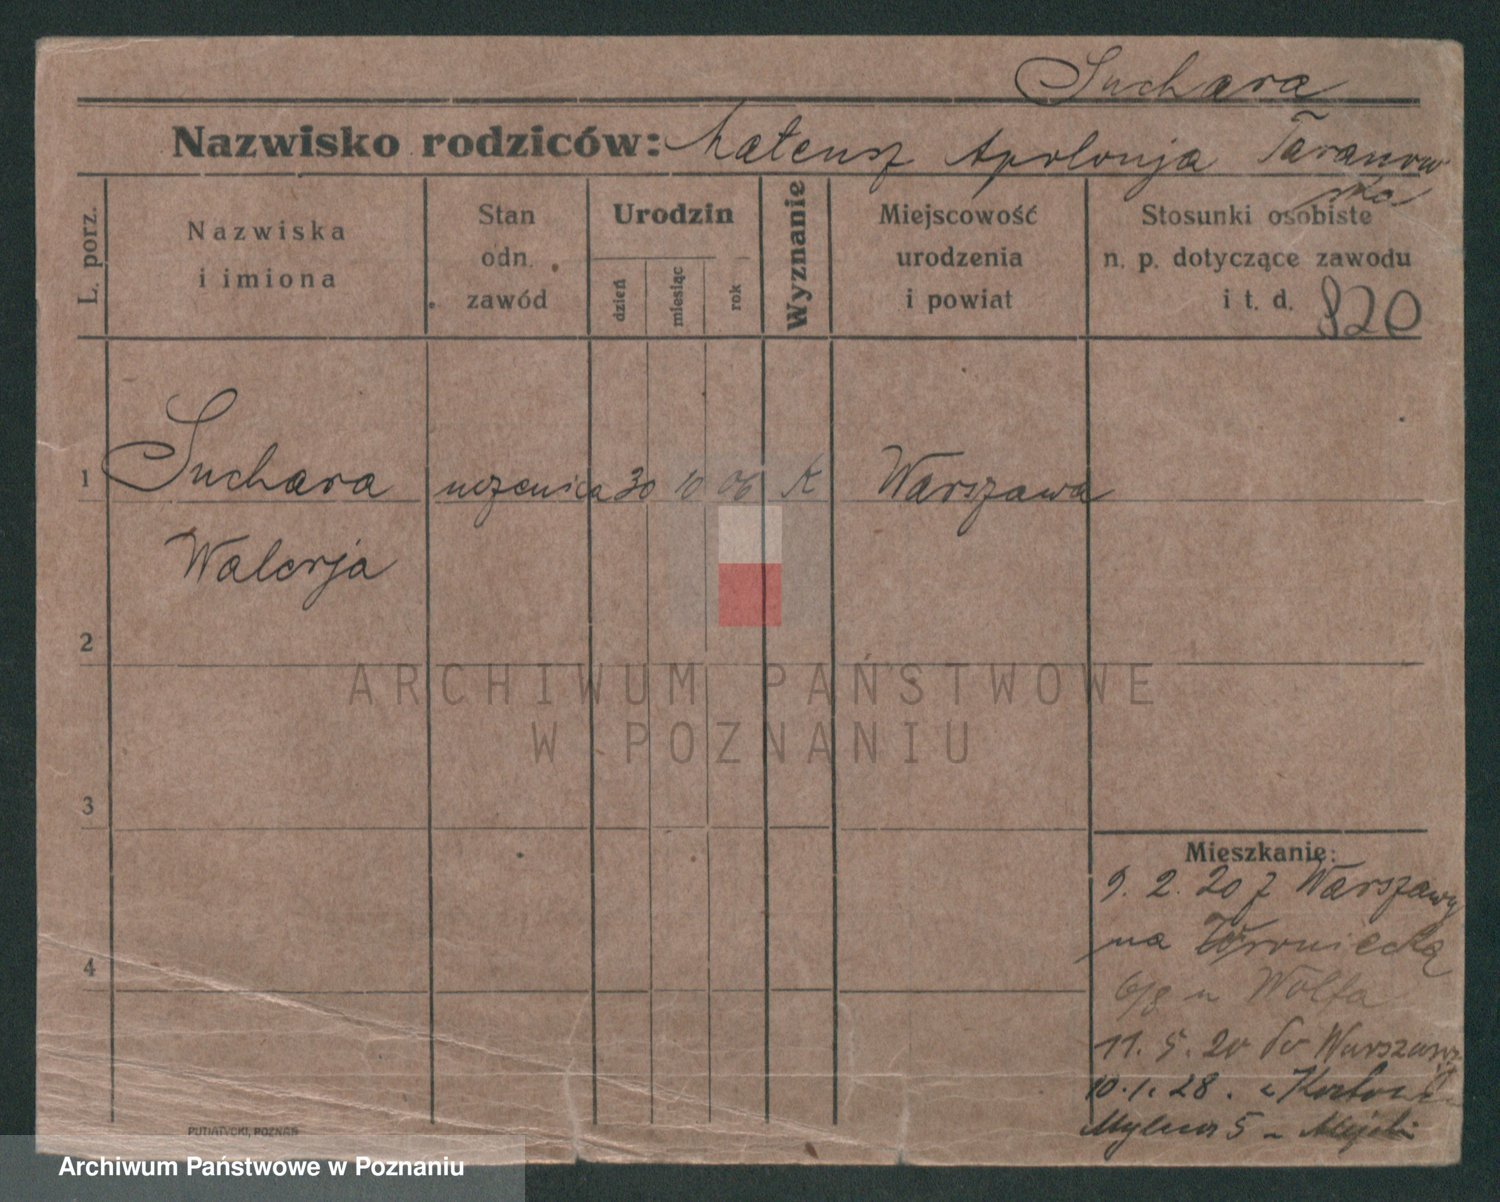 Suchara
Nazwisko rodziców: Mateusz Apolonja Taranow
ska
L. porz.
Nazwiska
i imiona
Stan
odn.
zawód
Urodzin
dzień
miesiąc
rok
Wyznanie
Miejscowość
urodzenia
i powiat
Stosunki osobiste
n. p. dotyczące zawodu
i t. d. 820
1 Suchara uczenica 30 10 06 K Warszawa
Walerja
2
3
4
ARCHIWUM PAŃSTWOWE
W POZNANIU
Mieszkanie:
9. 2. 20 z Warszawy
na
6/8 u Wolfa
11. 5. 20 do Warszawy
10. 1. 28.
5
PUTIATYCKI, POZNAŃ
Archiwum Państwowe w Poznaniu